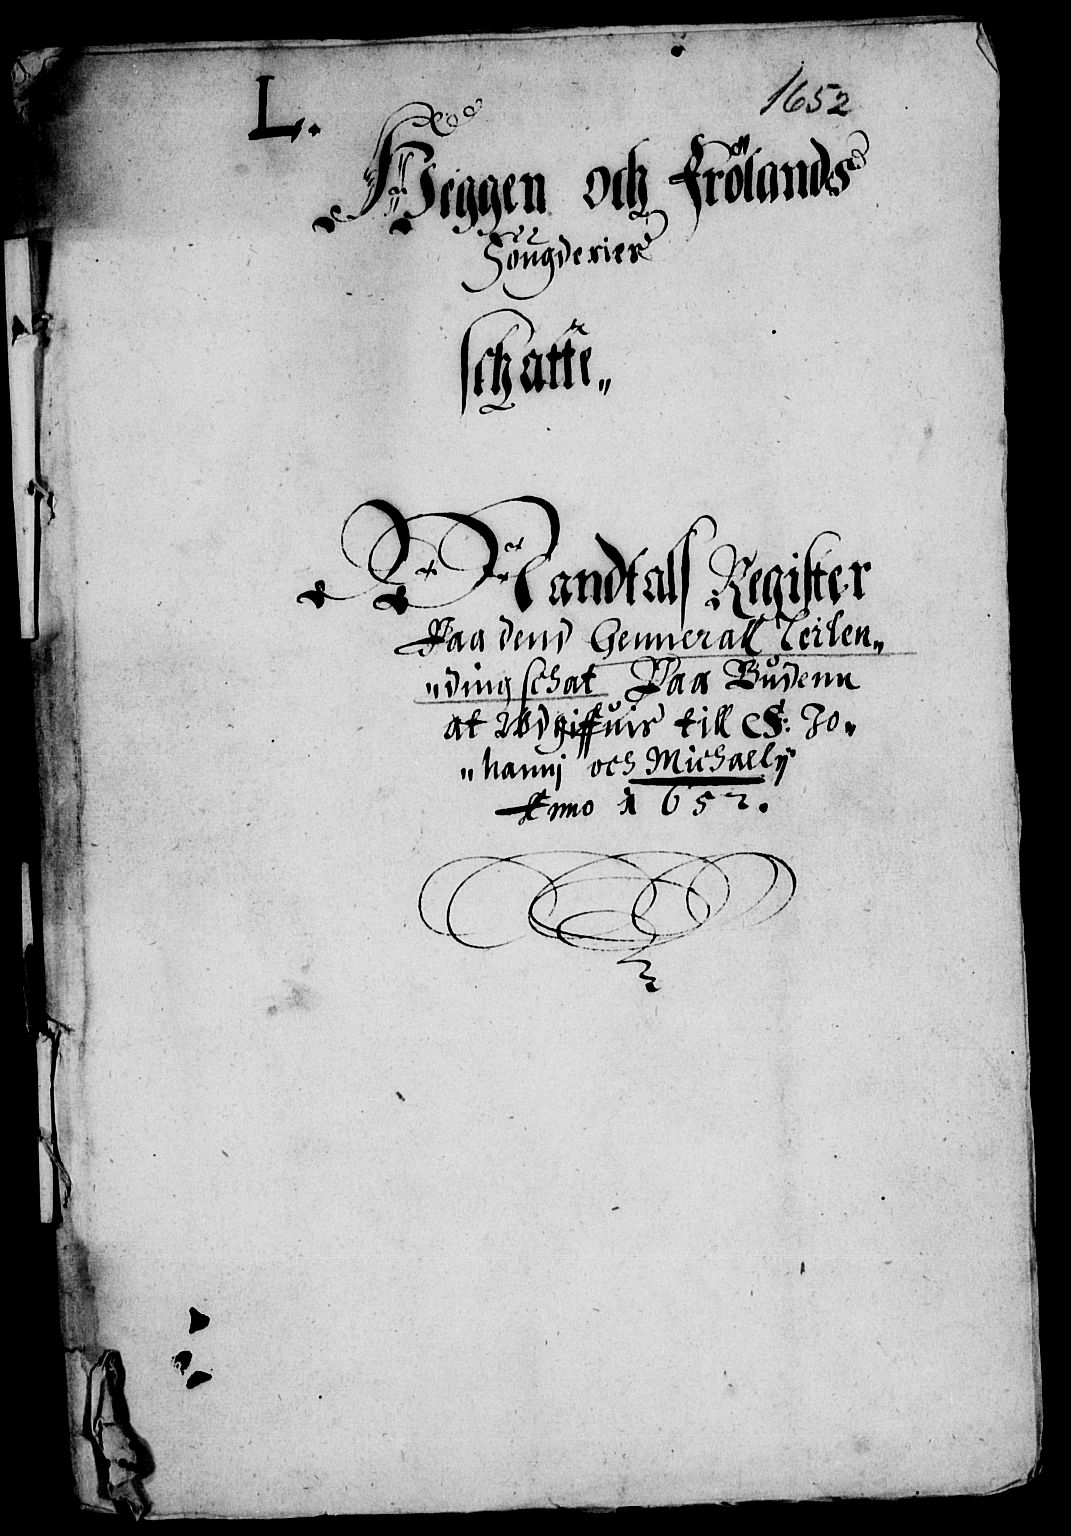 L.
1652
Heggen och Frölands
Fougderier
schatte„
Mandtals Register
Paa dend Gennerall Leilen„
„ding schat Paa Budenn
at Udgiffuis till S: Jo„
„hannj och Michaelÿ
Anno 1652.